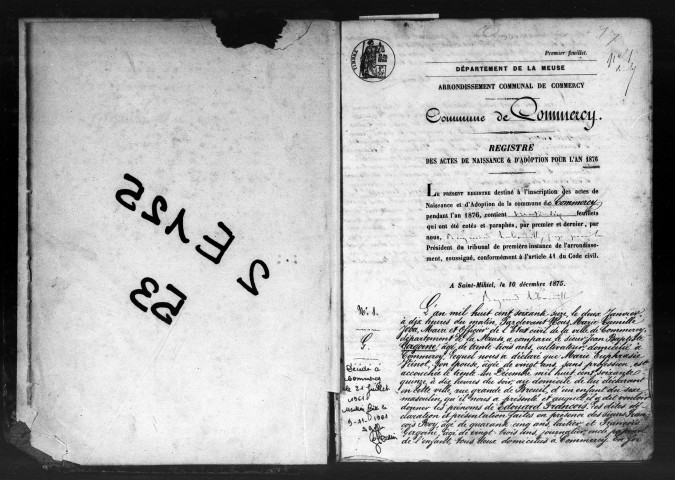 2 E 125
53
TIMBRE
Premier feuillet.
DÉPARTEMENT DE LA MEUSE
ARRONDISSEMENT COMMUNAL DE COMMERCY
Commune de Commercy.
REGISTRE
DES ACTES DE NAISSANCE & D'ADOPTION POUR L'AN 1876
LE PRÉSENT REGISTRE destiné à l'inscription des actes de
Naissance et d'Adoption de la commune de Commercy,
pendant l'an 1876, contient feuillets
qui ont été cotés et paraphés, par premier et dernier, par
nous,
Président du tribunal de première instance de l'arrondisse-
ment, soussigné, conformément à l'article 41 du Code civil.
A Saint-Mihiel, le 10 décembre 1875.
N° 1.
G.
Décédé à
Commercy
le 21 juillet
1961
L'an mil huit cent soixante seize, le deux Janvier
à dix heures du matin, Pardevant Nous Marie Camille
Maire et Officier de l'Etat civil de la ville de Commercy,
département de la Meuse, a comparu le sieur Jean Baptiste
Gergoine, âgé de trente trois ans, cultivateur, domicilié à
Commercy, lequel nous a déclaré que Marie Euphrasie
son épouse, âgée de vingt ans, sans profession, est
accouchée le trente un Décembre mil huit cent soixante
quinze, à dix heures du soir, au domicile de lui déclarant
en cette ville, rue grande de Breuil, d'un enfant du sexe
masculin, qu'il nous a présenté et auquel il a dit vouloir
donner les prénoms de Edouard François, les dites dé-
claration et présentation faites en présence des sieurs Fran-
çois âgé de quarante cinq ans, luthier et François
Gergoine, âgé de vingt trois ans, journalier, oncle paternel
de l'enfant, tous deux domiciliés à Commercy.